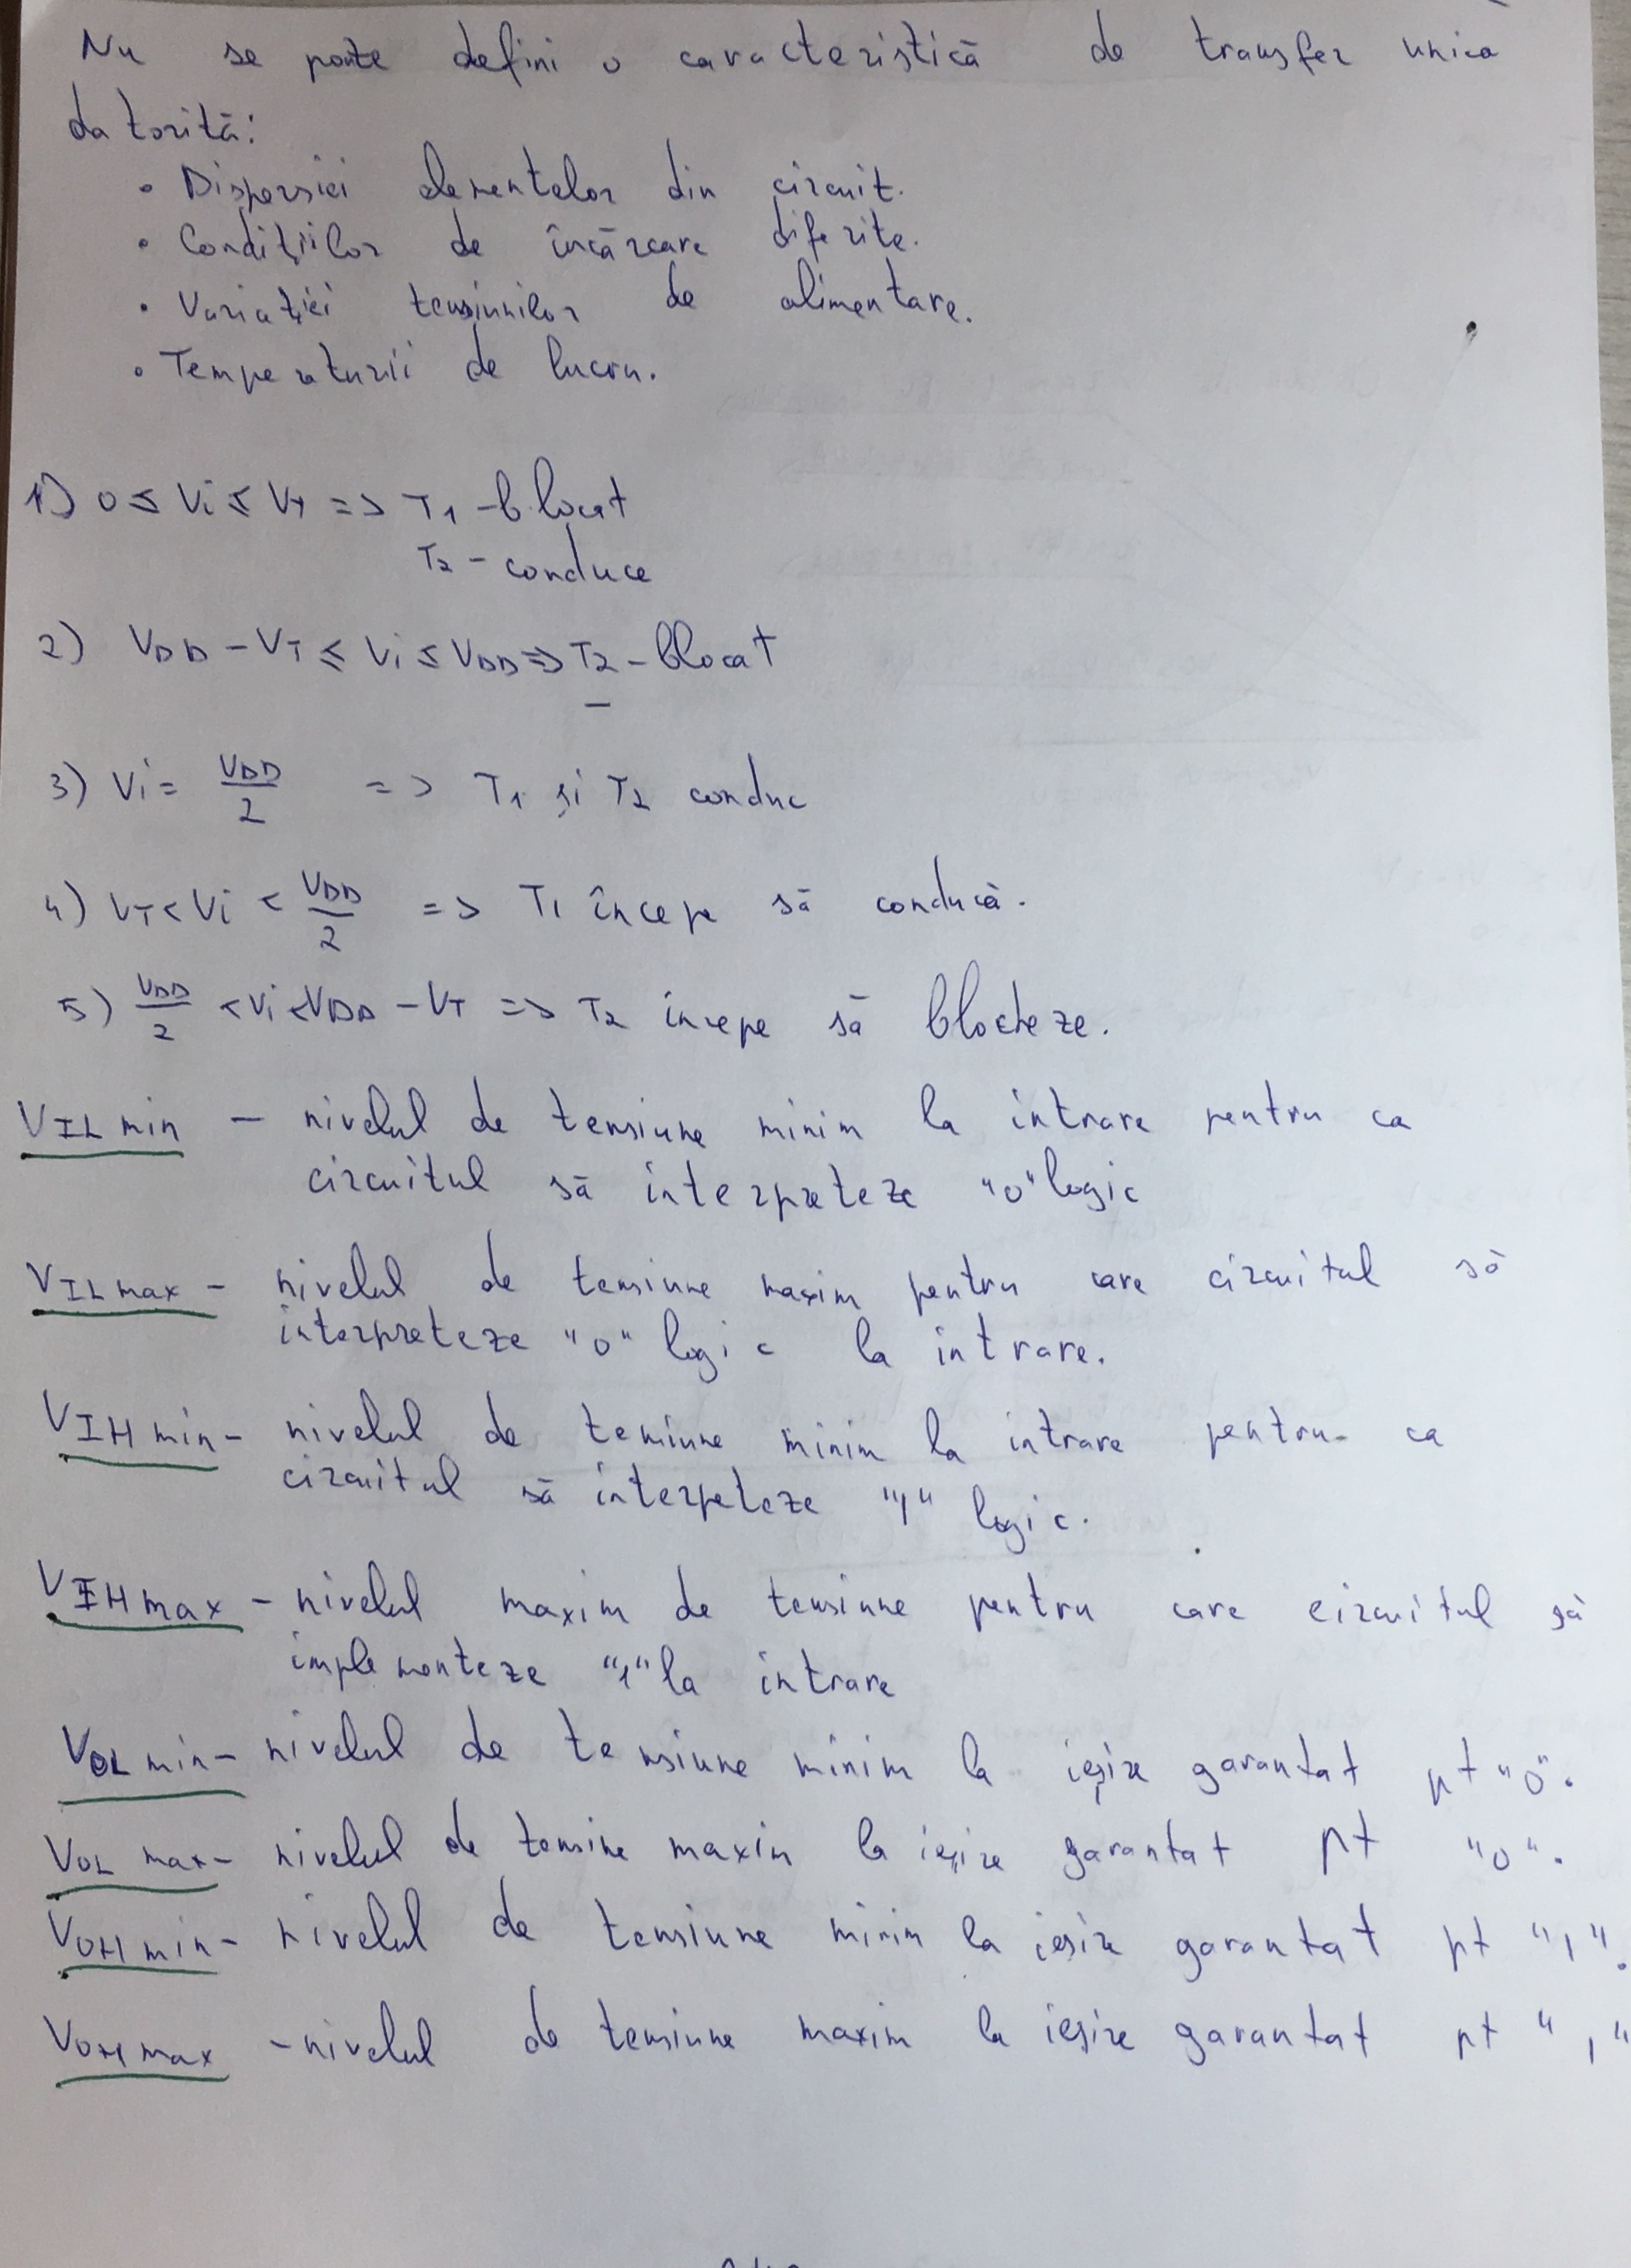 Nu se poate defini o caracteristică de transfer unică
datorită:
• Dispersiei elementelor din circuit.
• Condițiilor de încărcare diferite.
• Variației tensiunilor de alimentare.
• Temperaturii de lucru.
1) 0 ≤ Vi ≤ VT => T1 - blocat
T2 - conduce
2) VDD - VT ≤ Vi ≤ VDD => T2 - blocat
3) Vi = VDD/2 => T1 și T2 conduc
4) VT < Vi < VDD/2 => T1 începe să conducă.
5) VDD/2 < Vi < VDD - VT => T2 începe să blocheze.
VIL min - nivelul de tensiune minim la intrare pentru ca
circuitul să interpreteze "0" logic
VIL max - nivelul de tensiune maxim pentru care circuitul să
interpreteze "0" logic la intrare.
VIH min - nivelul de tensiune minim la intrare pentru ca
circuitul să interpeteze "1" logic.
VIH max - nivelul maxim de tensiune pentru care circuitul să
implementeze "1" la intrare
VOL min - nivelul de tensiune minim la ieșire garantat pt "0".
VOL max - nivelul de tensine maxim la ieșire garantat pt "0".
VOH min - nivelul de tensiune minim la ieșire garantat pt "1".
VOH max - nivelul de tensiune maxim la ieșire garantat pt "1"